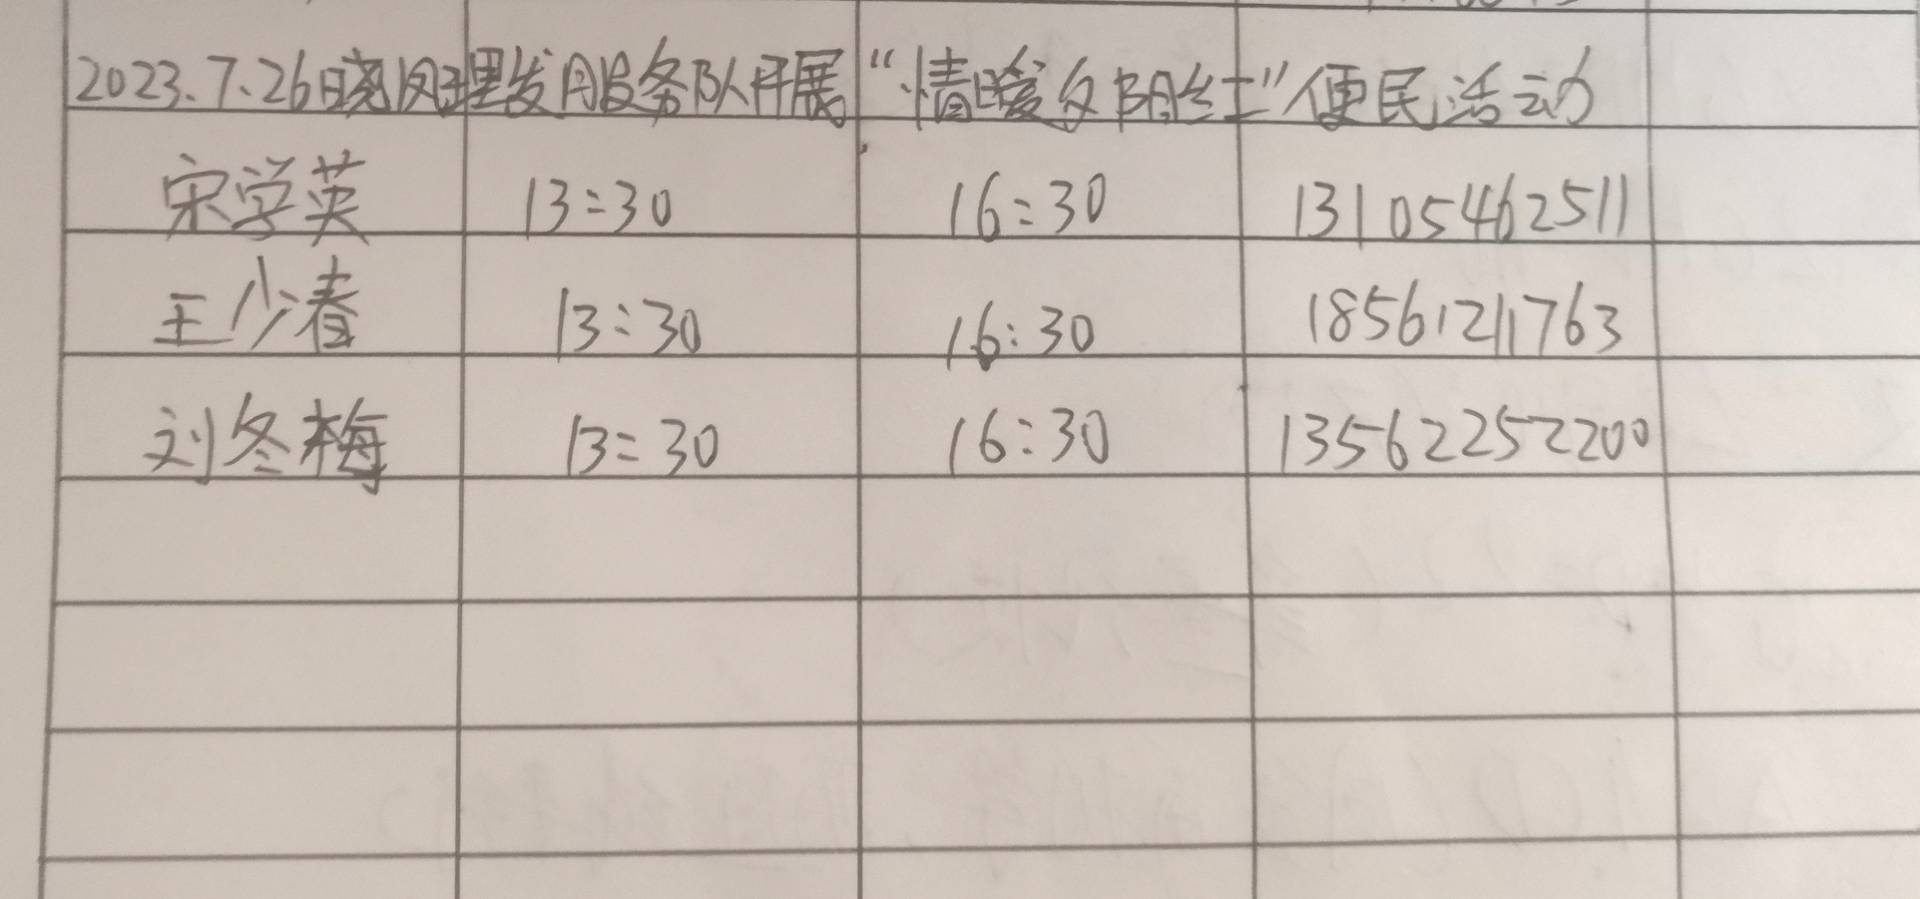 2023.7.26晓风理发服务队开展“情暖夕阳红”便民活动
宋学英 13:30 16:30 13105462511
王少春 13:30 16:30 18561211763
刘冬梅 13:30 16:30 13562252200